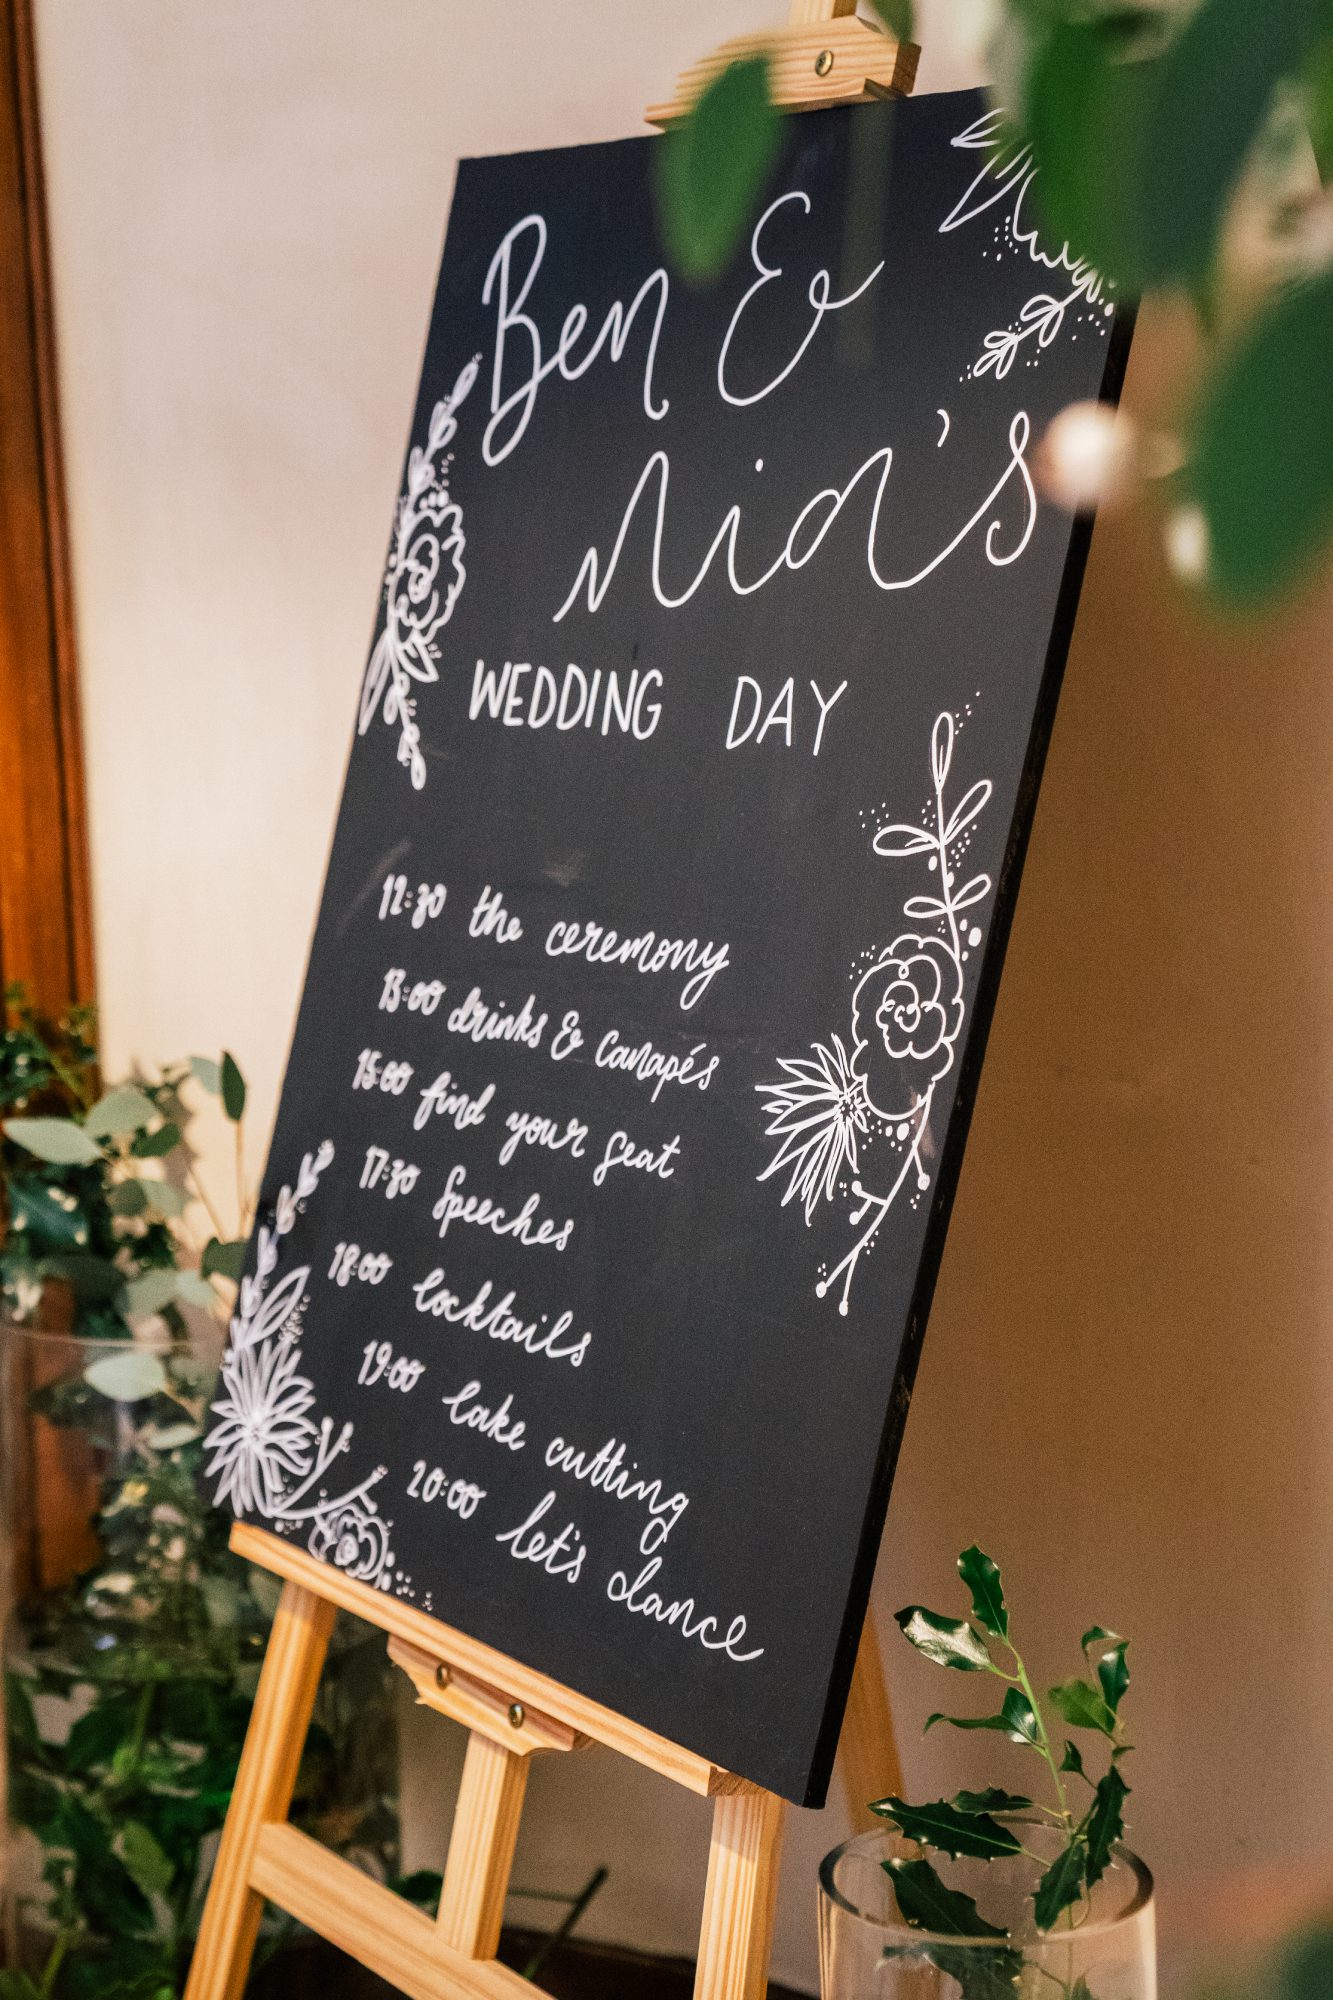 Ben &
Nia's
WEDDING DAY
12:30 the ceremony
13:00 drinks & canapés
15:00 find your seat
17:30 Speeches
18:00 Cocktails
19:00 Cake cutting
20:00 let's dance